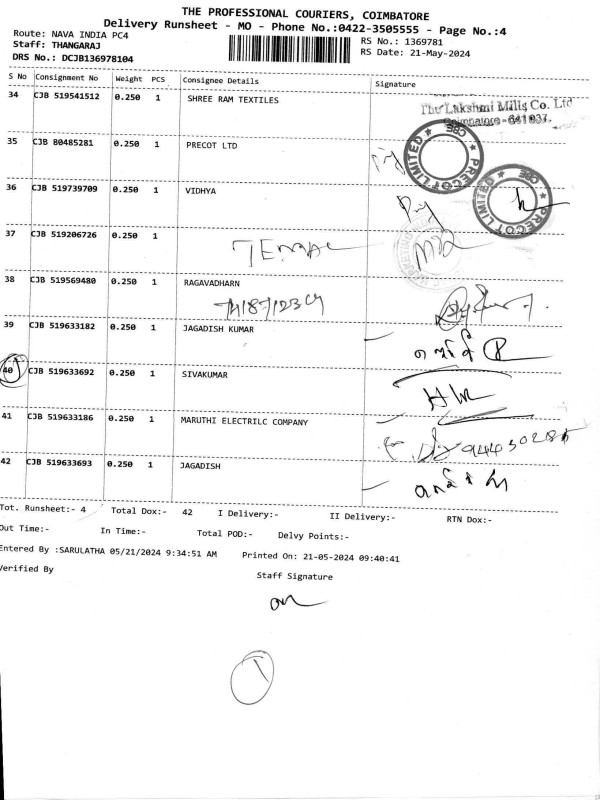 THE PROFESSIONAL COURIERS, COIMBATORE
Delivery Runsheet - MO - Phone No.:0422-3505555 - Page No.:4
Route: NAVA INDIA PC4
Staff: THANGARAJ
DRS No.: DCJB136978104
RS No.: 1369781
RS Date: 21-May-2024
S No Consignment No Weight PCS Consignee Details Signature
34 CJB 519541512 0.250 1 SHREE RAM TEXTILES
The Lakshmi Mills Co. Ltd
Coimbatore - 641037.
35 CJB 80485281 0.250 1 PRECOT LTD
PRECOT LIMITED * CBE *
36 CJB 519739709 0.250 1 VIDHYA
PRECOT LIMITED * CBE *
37 CJB 519206726 0.250 1
38 CJB 519569480 0.250 1 RAGAVADHARN
39 CJB 519633182 0.250 1 JAGADISH KUMAR
40 CJB 519633692 0.250 1 SIVAKUMAR
41 CJB 519633186 0.250 1 MARUTHI ELECTRILC COMPANY
42 CJB 519633693 0.250 1 JAGADISH
Tot. Runsheet:- 4 Total Dox:- 42 I Delivery:- II Delivery:- RTN Dox:-
Out Time:- In Time:- Total POD:- Delvy Points:-
Entered By :SARULATHA 05/21/2024 9:34:51 AM Printed On: 21-05-2024 09:40:41
Verified By
Staff Signature